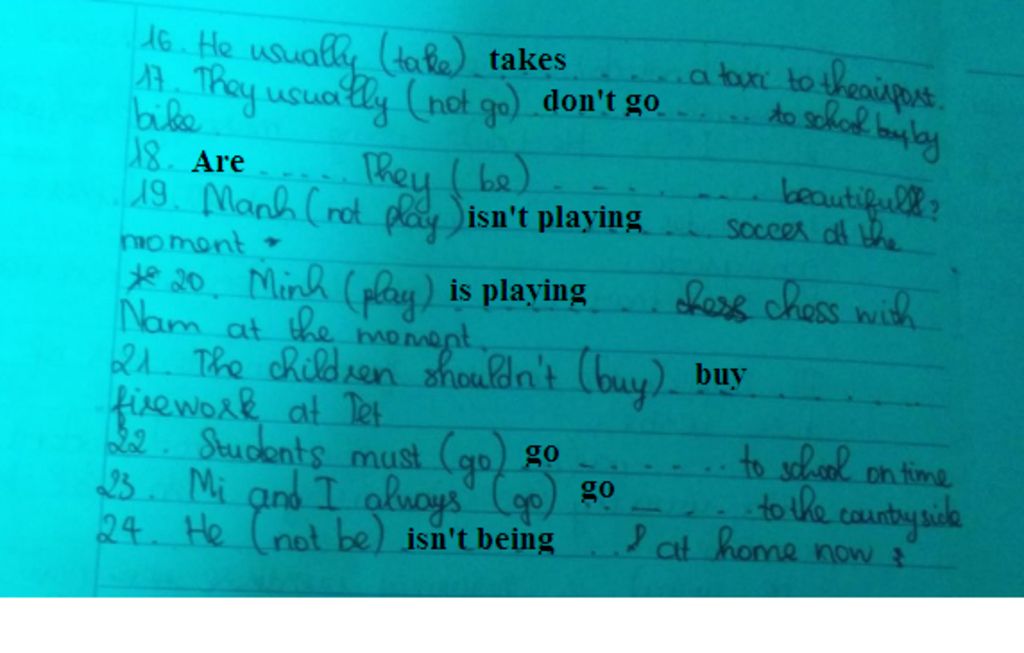 16. He usually (take) takes ........ a taxi to the airport.
17. They usually (not go) don't go ........ to school by by
bike
18. Are ..... They (be) ........ beautiful?
19. Manh (not play) isn't playing ... soccer at the
moment.
* 20. Minh (play) is playing ........ chess chess with
Nam at the moment.
21. The children shouldn't (buy) buy ........
firework at Tet
22. Students must (go) go ........ to school on time
23. Mi and I always (go) go ........ to the countryside
24. He (not be) isn't being ... at home now